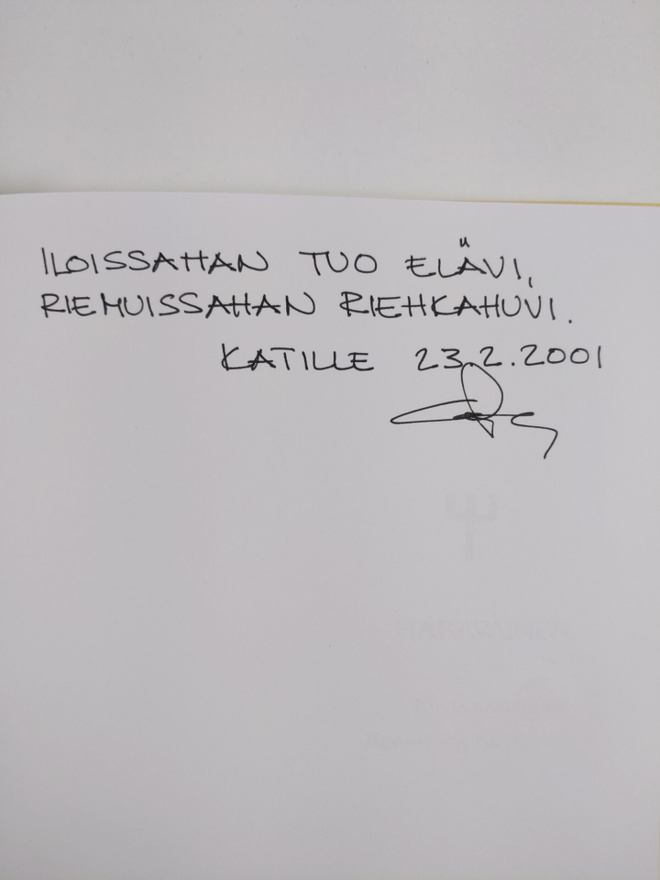 ILOISSAHAN TUO ELÄVI,
RIEMUISSAHAN RIEHKAHUVI.
KATILLE 23.2.2001